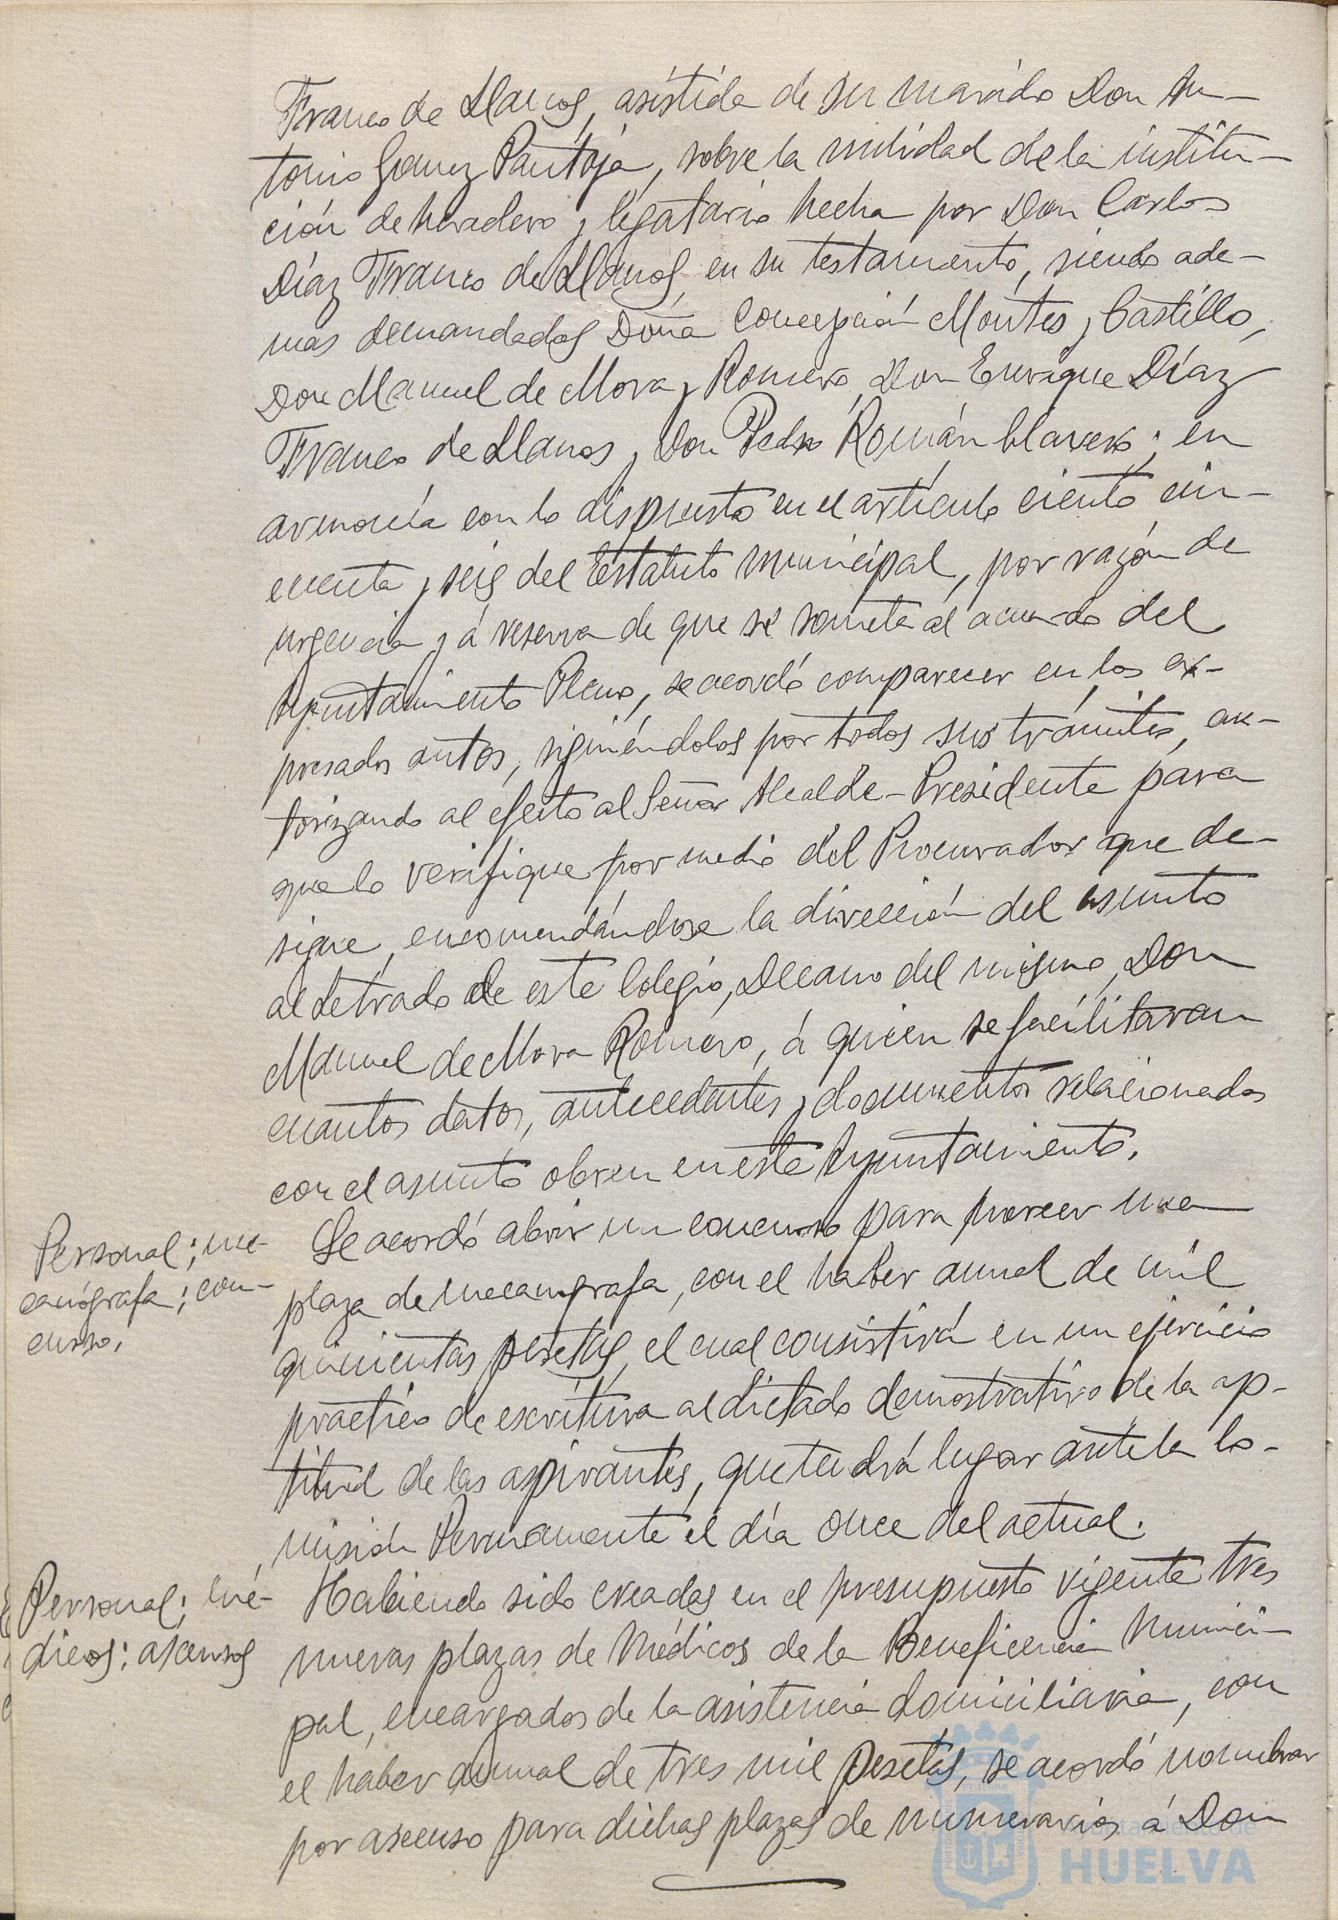 Franco de Llanos, asistida de su marido Don An-
tonio Gomez Pantoja, sobre la nulidad de la institu-
ción de heredero y legatario hecha por Don Carlos
Díaz Franco de Llanos, en su testamento, siendo ade-
mas demandados Doña Concepción Montes y Castillo,
Don Manuel de Mora y Romero, Don Enrique Díaz
Franco de Llanos y Don Pedro Román Clavero; en
armonía con lo dispuesto en el artículo ciento cin-
cuenta y seis del Estatuto Municipal, por razón de
urgencia y á reserva de que se someta al acuerdo del
Ayuntamiento Pleno, se acordó comparecer en los ex-
presados autos, siguiéndolos por todos sus trámites, au-
torizando al efecto al Señor Alcalde-Presidente para
que lo verifique por medio del Procurador que de-
signe, encomendándose la dirección del asunto
al Letrado de este Colegio, Decano del mismo, Don
Manuel de Mora Romero, á quien se facilitaran
cuantos datos, antecedentes y documentos relacionados
con el asunto obren en este Ayuntamiento.
Personal; me-
canógrafa; con-
curso.
Se acordó abrir un concurso para proveer una
plaza de mecanógrafa, con el haber anual de mil
quinientas pesetas, el cual consistirá en un ejercicio
practico de escritura al dictado demostrativo de la ap-
titud de las aspirantes, que tendrá lugar ante la Co-
misión Permanente el día once del actual.
Personal; mé-
dicos; ascensos
Habiendo sido creadas en el presupuesto vigente tres
nuevas plazas de Médicos de la Beneficencia Munici-
pal, encargados de la asistencia domiciliaria, con
el haber anual de tres mil pesetas, se acordó nombrar
por ascenso para dichas plazas de numerarios á Don
Ayuntamiento de
HUELVA